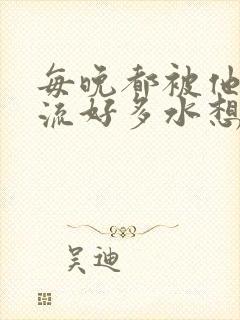 每晚都被他
流好多水想
吴迪